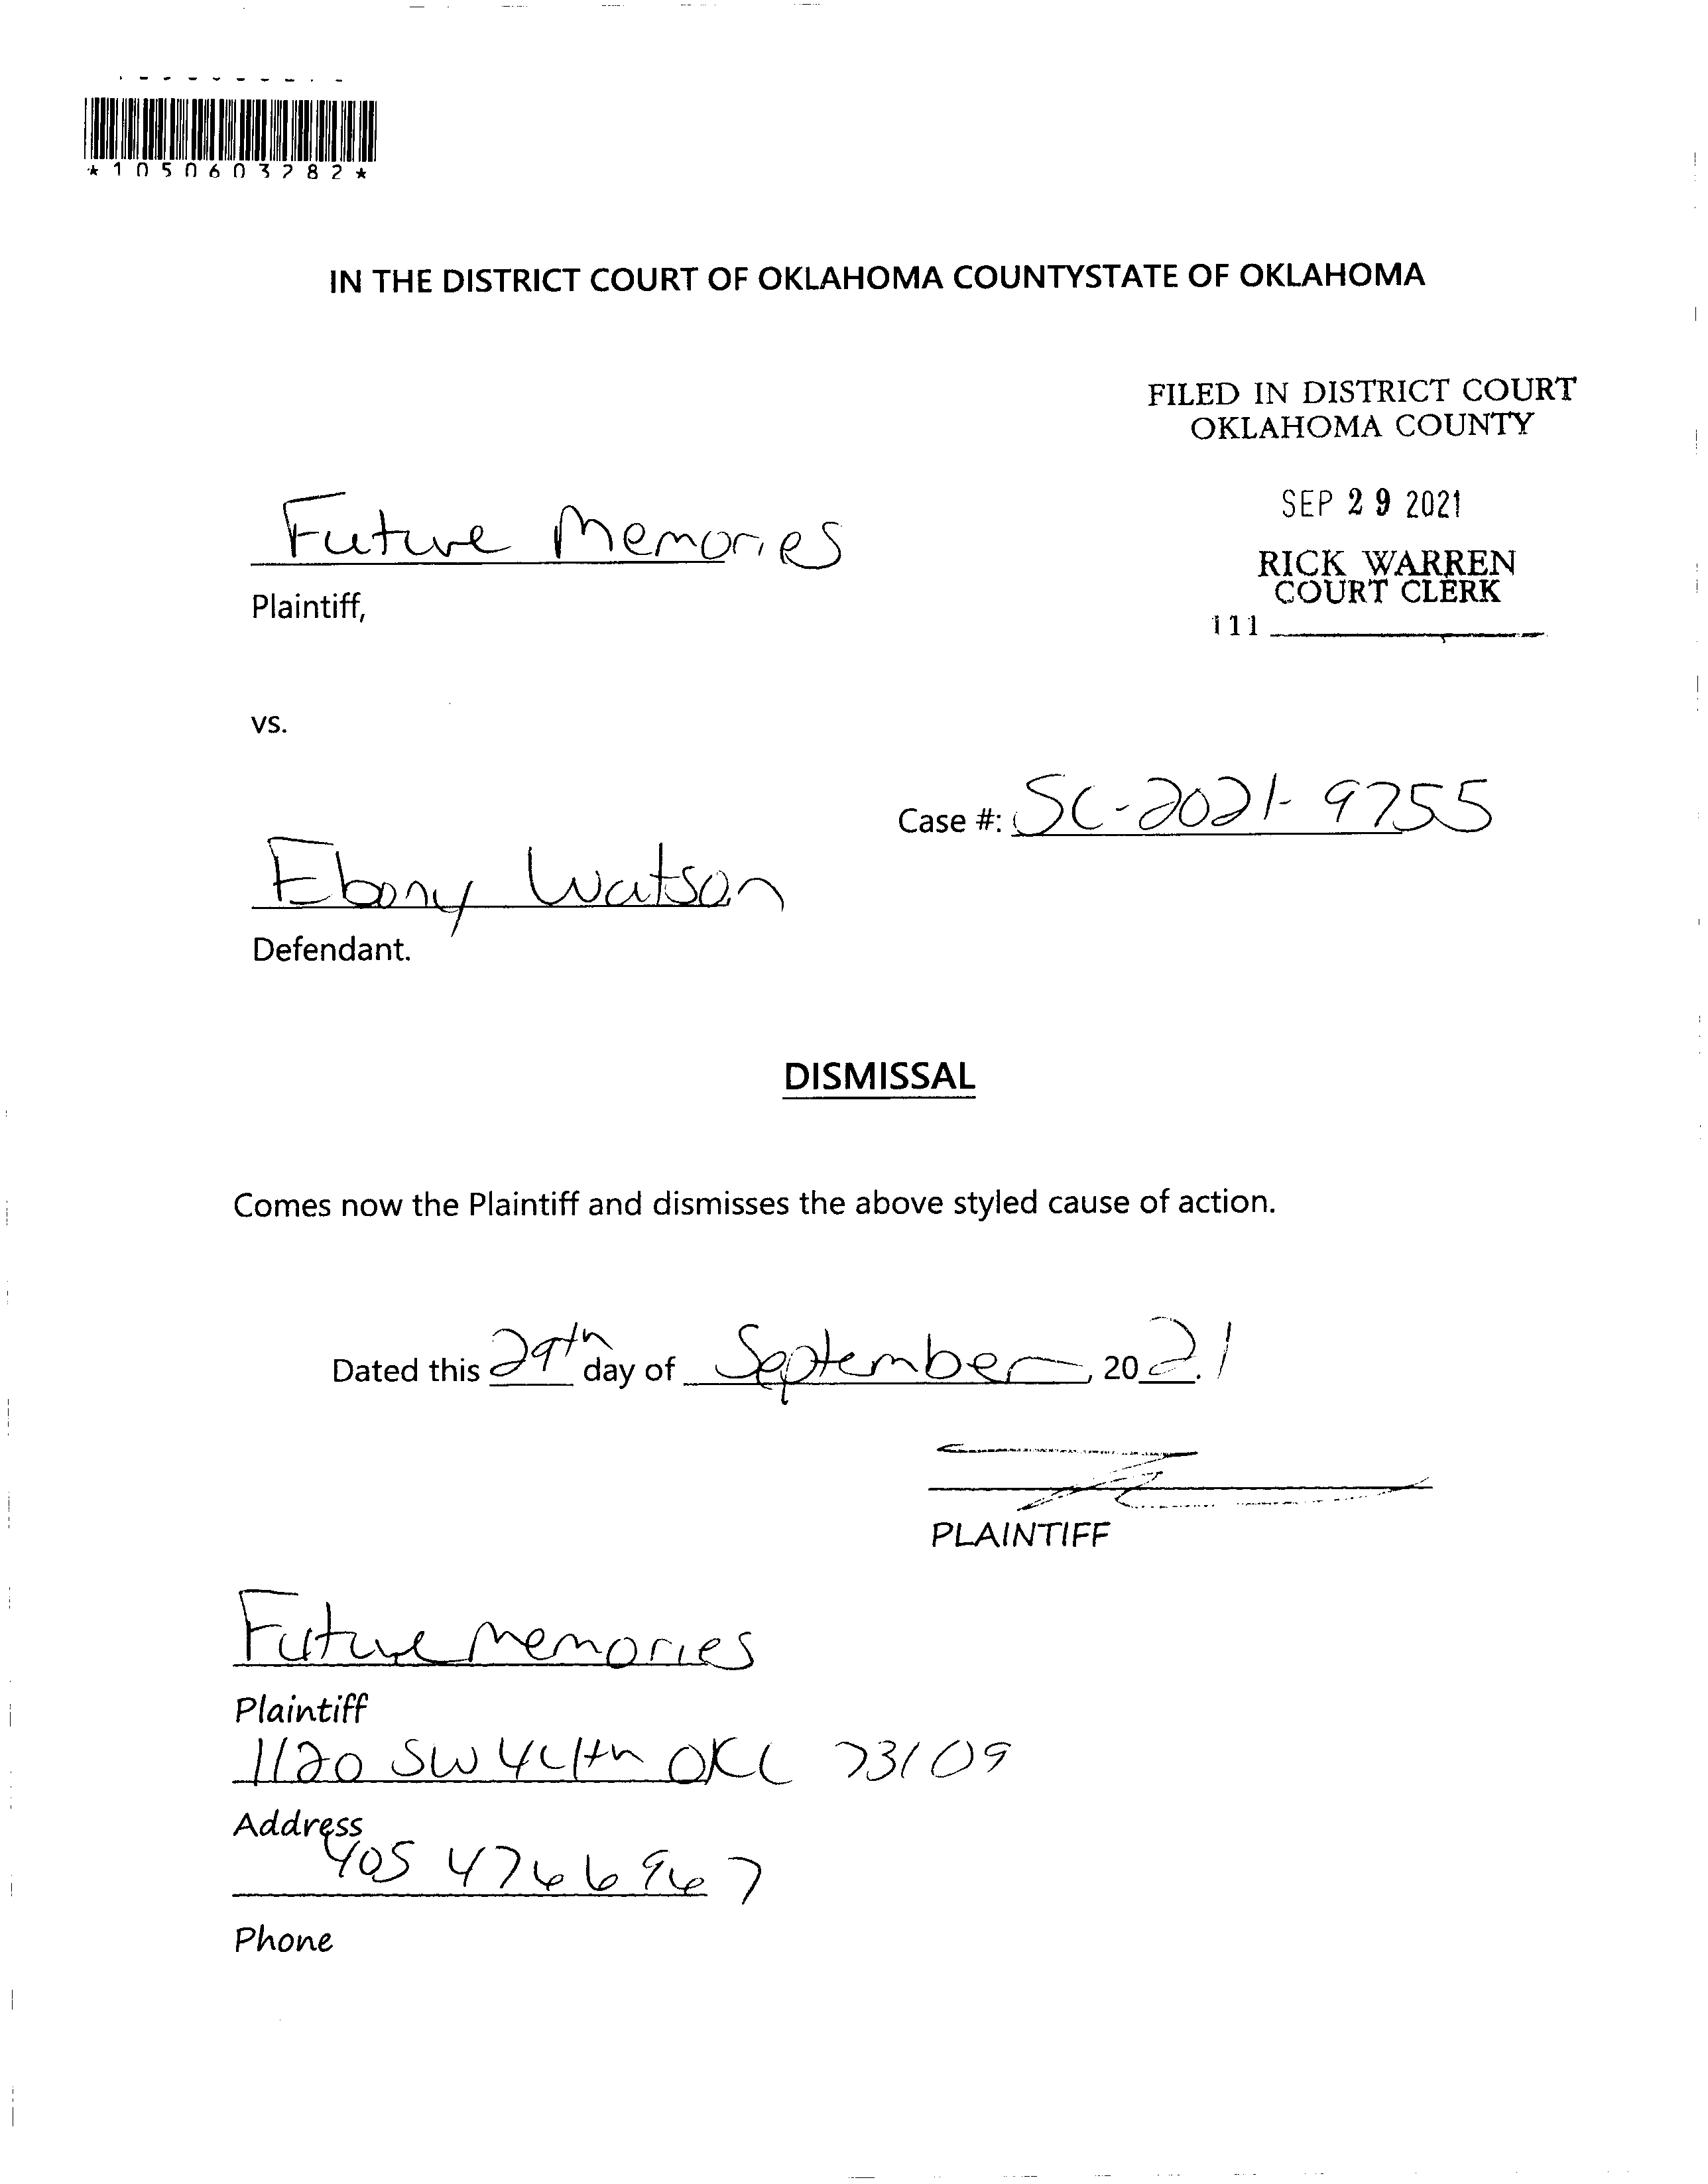 *1050603282*
IN THE DISTRICT COURT OF OKLAHOMA COUNTYSTATE OF OKLAHOMA
FILED IN DISTRICT COURT
OKLAHOMA COUNTY
SEP 29 2021
RICK WARREN
COURT CLERK
111
Future Memories
Plaintiff,
vs.
Case #: SC-2021-9755
Ebony Watson
Defendant.
DISMISSAL
Comes now the Plaintiff and dismisses the above styled cause of action.
Dated this 29th day of September, 2021.
PLAINTIFF
Future Memories
Plaintiff
1120 SW 44th OKC 73109
Address
405 476 6967
Phone